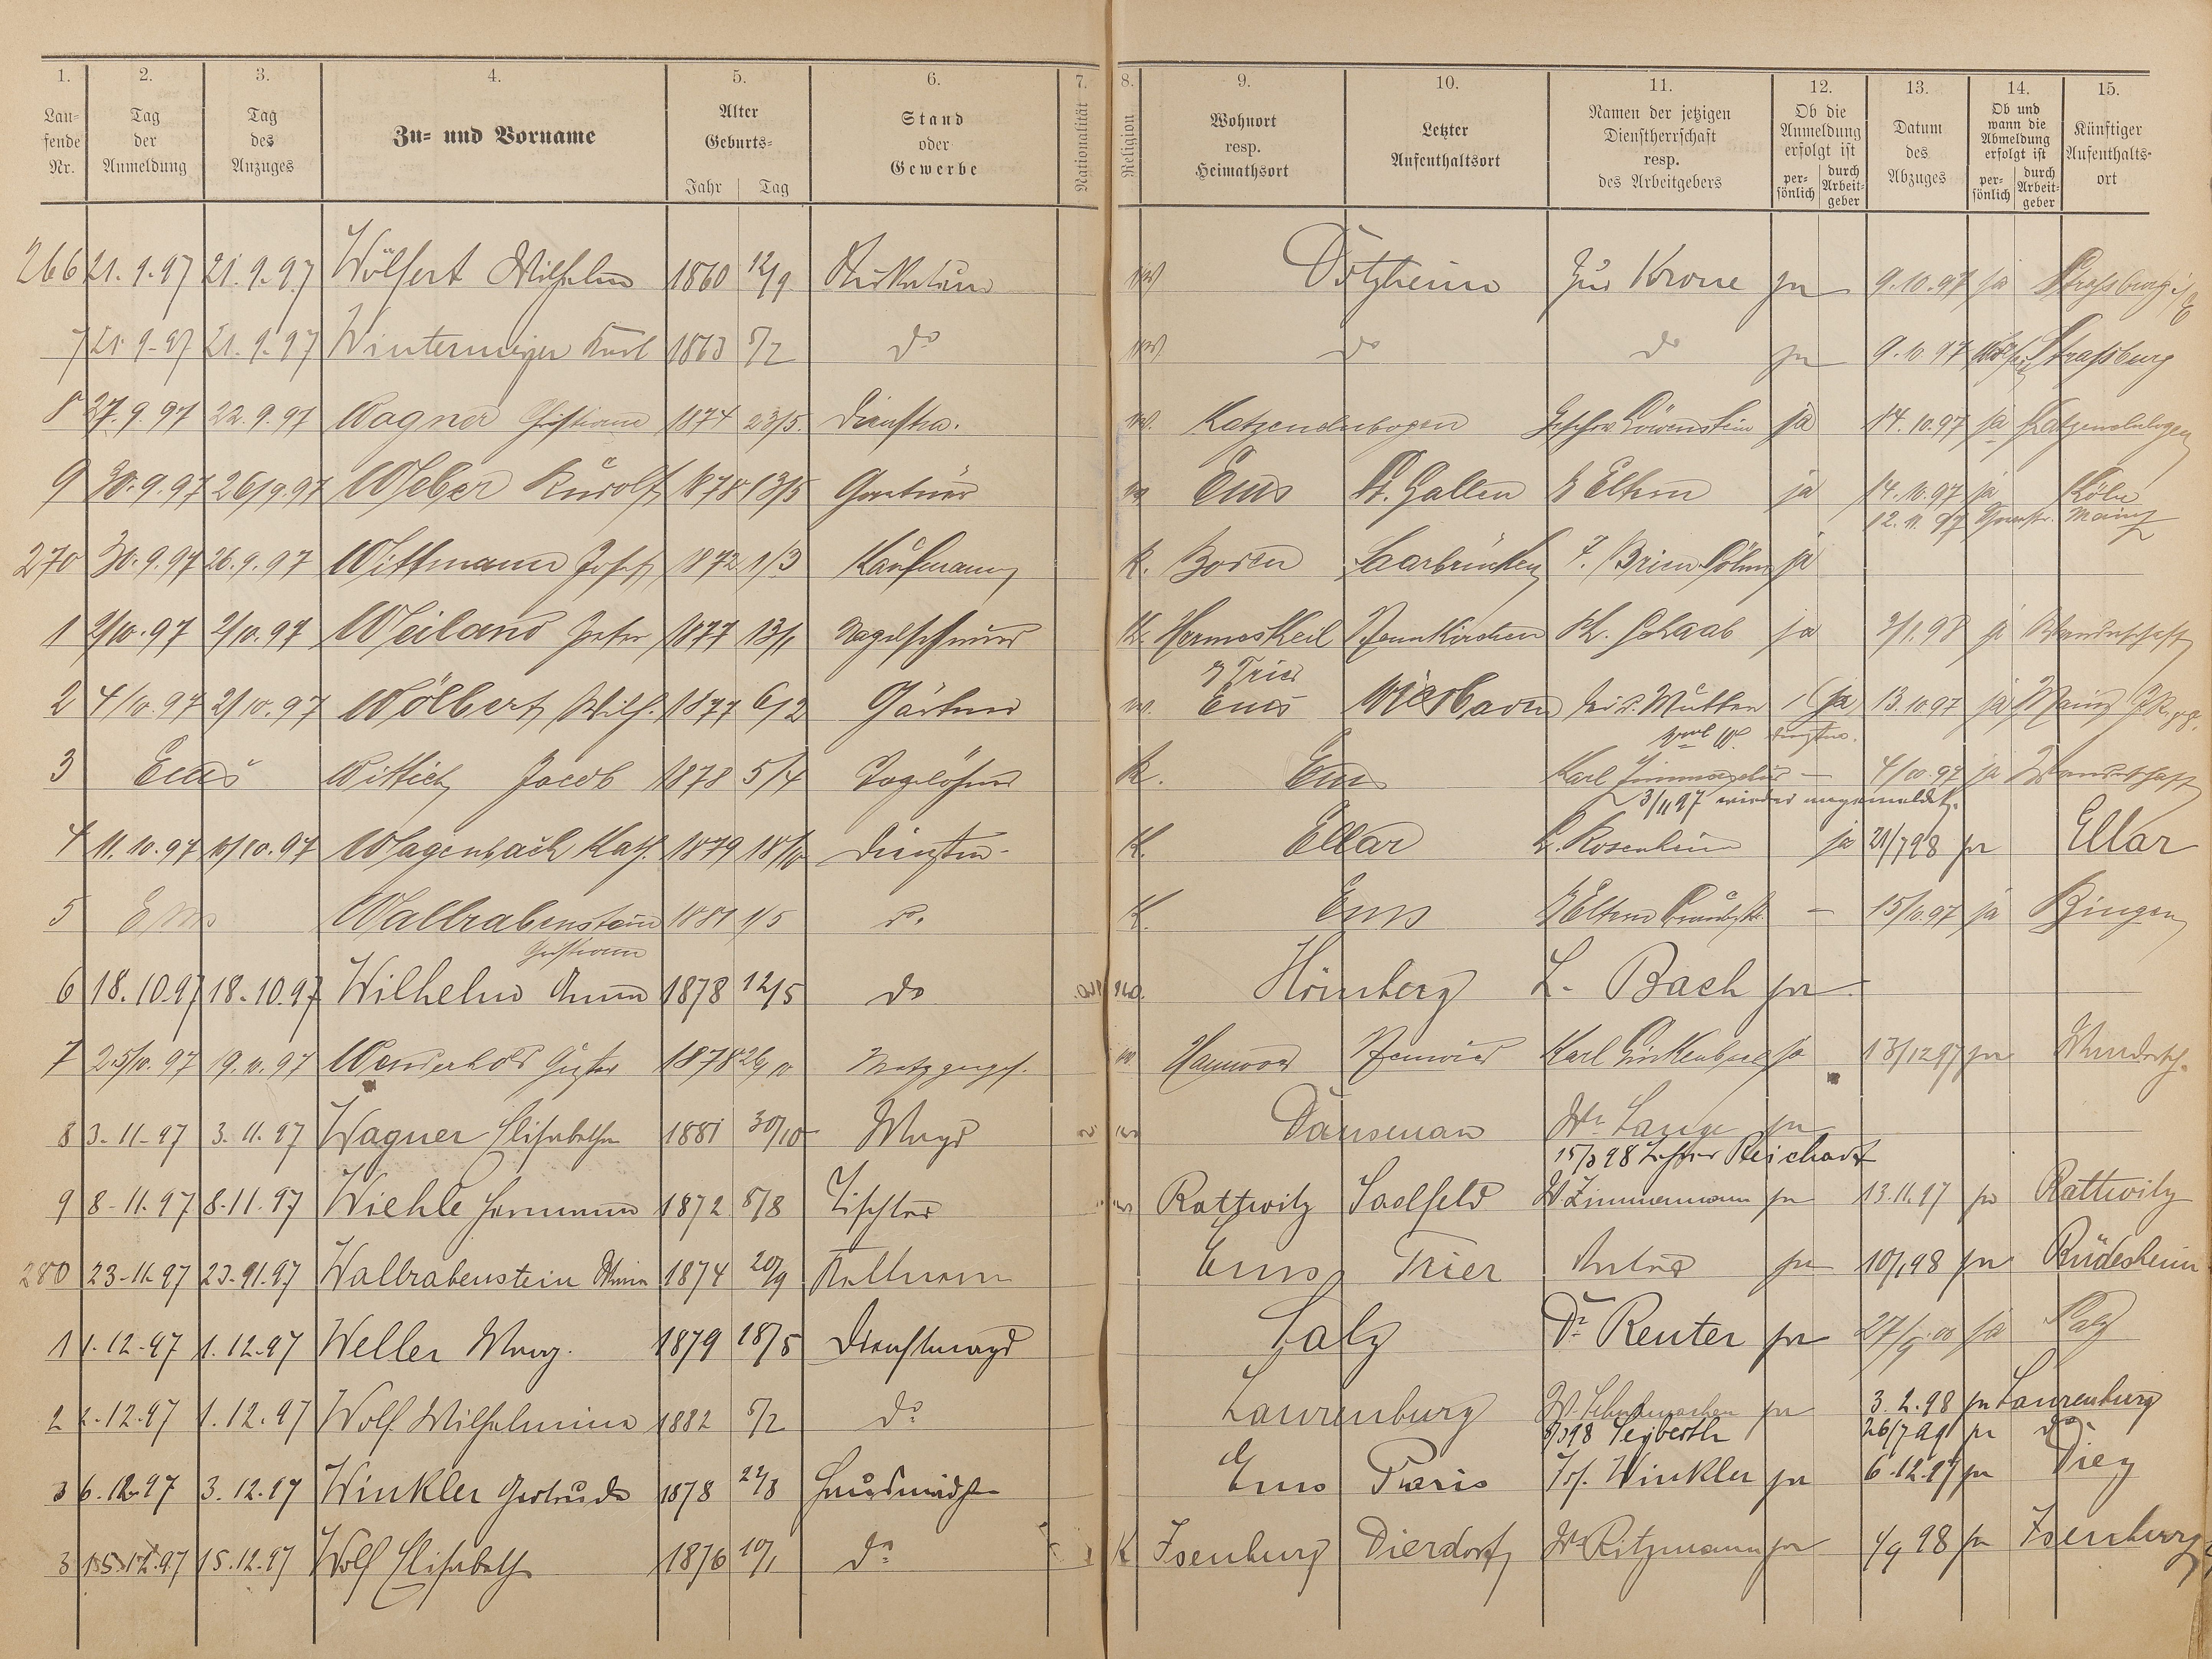 1. 2. 3. 4. 5. 6. 7. 8. 9. 10. 11. 12. 13. 14. 15.
Laufende Nr. Tag der Anmeldung Tag des Anzuges Zu= und Vorname Alter Geburts= Jahr Tag Stand oder Gewerbe Nationalität Religion Wohnort resp. Heimathsort Letzter Aufenthaltsort Namen der jetzigen Dienstherrschaft resp. des Arbeitgebers Ob die Anmeldung erfolgt ist persönlich durch Arbeitgeber Datum des Abzuges Ob und wann die Abmeldung erfolgt ist persönlich durch Arbeitgeber Künftiger Aufenthaltsort
266 21.9.97 21.9.97 Wölfert Wilhelm 1860 12/9 Dotzheim Zur Krone ja 9.10.97 ja Strassburg i/E
7 21.9.97 21.9.97 Wintermeyer Karl 1863 5/2 do do do ja 9.10.97 Strassburg
8 27.9.97 22.9.97 Wagner Christiane 1874 23/5. Dienstm. Katzenelnbogen Löwenstein ja 14.10.97 ja Katzenelnbogen
9 30.9.97 26/9.97 Weber Rudolf 1878 13/5 Ems St. Gallen z Eltern ja 14.10.97 ja Köln
12.11.97 Mainz
270 30.9.97 26.9.97 Wittmann Josef 1872 1/3 Kaufmann K. Saarbrücken ja
1 2/10.97 2/10.97 Weiland Peter 1877 13/1 Nagelschmied K. Hermeskeil Neunkirchen ja 2/1.98 ja Wanderschaft
z Trier
2 4/10.97 2/10.97 Wölbert Wilh. 1877 6/2 Gärtner Ems Wiesbaden bei d. Mutter ja 13.10.97 ja Mainz
3 Ems Wittich Jacob 1878 5/4 Tagelöhner K. Ems Karl — 4/10.97 ja Wanderschaft
3/11 97 wieder angemeldet.
4 11.10.97 10/10.97 Wagenbach Kath. 1879 18/10 Dienstm. K. Ellar L. Rosenheim ja 21/7 98 ja Ellar
5 Ems Wallrabenstein 1881 1/5 do. K. Ems z Eltern — 15/10.97 ja Bingen
Christiane
6 18.10.97 18.10.97 Wilhelm Anna 1878 12/5 do Hömberg L. Bach ja
7 25/10.97 19.10.97 Wenderhold Gustav 1878 26/10 Metzgerges. Hannover Neuwied Karl ja 13/12 97 ja Wandersch.
8 3.11.97 3.11.97 Wagner Elisabetha 1881 30/10 Magd Dausenau Wr. Lange ja
15/3 98 Reichard
9 8.11.97 8.11.97 Wiehle Hermann 1872 5/8 Tischler Rattwitz Saalfeld W Zimmermann ja 13.11.97 ja Rattwitz
280 23.11.97 23.11.97 Wallrabenstein 1874 20/9 Kellnerin Ems Trier ja 10/1 98 ja Rüdesheim
1 1.12.97 1.12.97 Weller Marg. 1879 18/5 Dienstmagd Salz Dr. Reuter ja 27/9.00 ja Salz
2 2.12.97 1.12.97 Wolf Wilhelmine 1882 5/2 do Laurenburg ja 3.2.98 ja Laurenburg
Seyberth 26/7 99 ja do
3 6.12.97 3.12.97 Winkler Gertrude 1878 22/8 Hausmädchen Ems Paris Jos. Winkler ja 6.12.97 ja Diez
3 15.12.97 15.12.97 Wolf Elisabeth 1876 10/1 do K Isenburg Dierdorf Wr Ritzmann ja 4/9 98 ja Isenburg